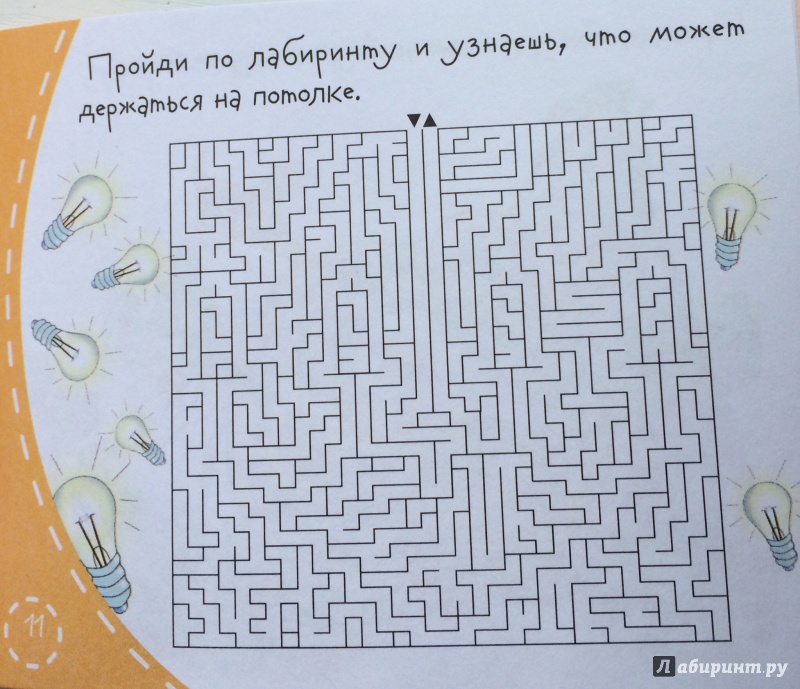 Пройди по лабиринту и узнаешь, что может
держаться на потолке.
11
Лабиринт.ру